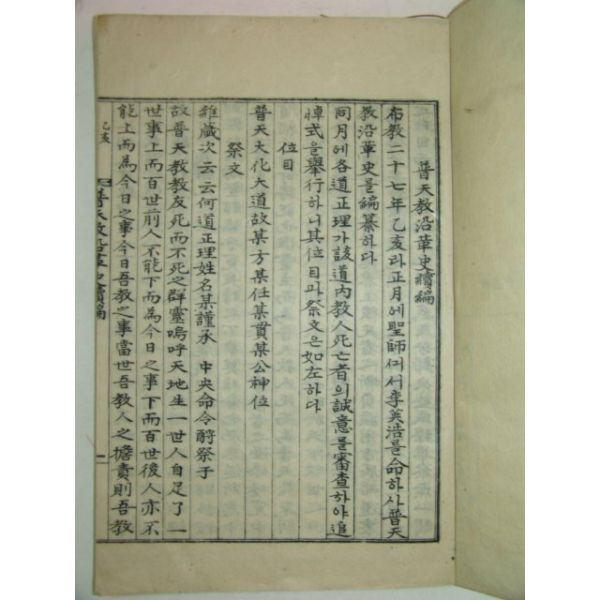 普天教沿革史續編
布教二十七年乙亥라正月에聖師께서李英浩를命하사普天
教沿革史를編纂하다
同月에各道正理가該道內教人死亡者의誠意를審查하야追
悼式을舉行하니其位目과祭文은如左하다
位目
普天大化大道故某方某任某貫某公神位
祭文
維歲次云云何道正理姓名某謹承 中央命令酹祭于
故普天教教友死而不死之群靈嗚呼天地生一世人自足了一
世事上而百世前人不能下而為今日之事下而百世後人亦不
能上而為今日之事今日吾教之事當世吾教人之擔責則吾教
乙亥 普天教沿革史續編 一